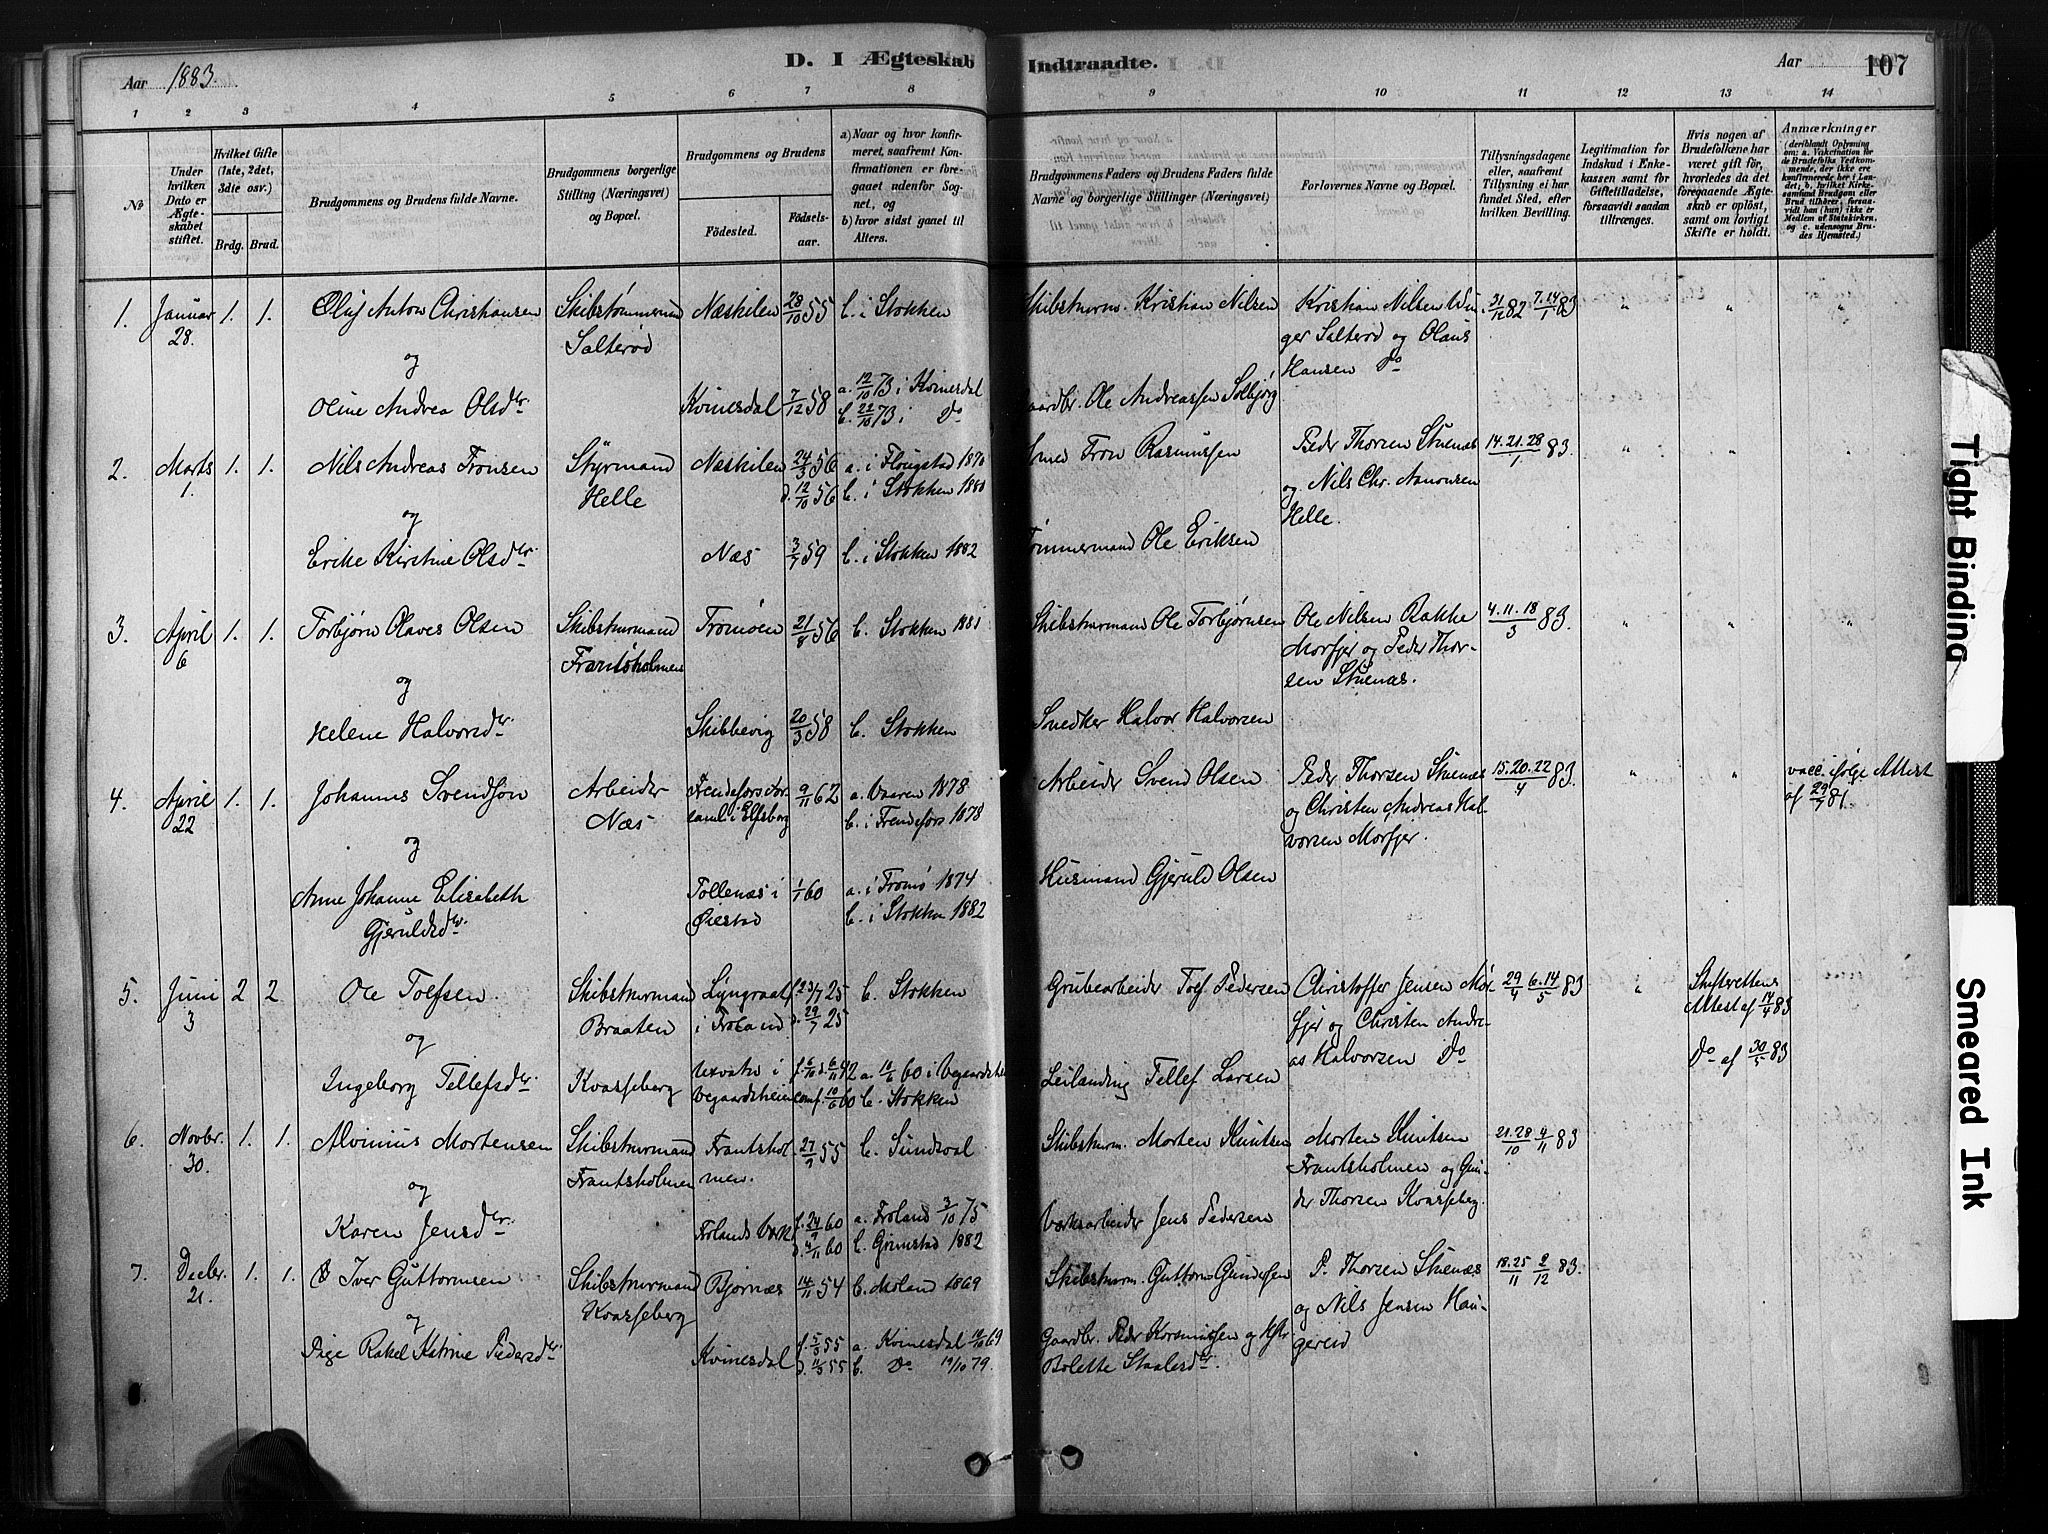 D. I Ægteskab Indtraadte.
Aar 1883.
Aar
107
1 2 3 4 5 6 7 8 9 10 11 12 13 14
No
Under hvilken Dato er Ægteskabet stiftet.
Hvilket Gifte (1ste, 2det, 3die osv.)
Brdg. Brud.
Brudgommens og Brudens fulde Navne.
Brudgommens borgerlige Stilling (Næringsvei) og Bopæl.
Brudgommens og Brudens
Fødested.
Fødselsaar.
a) Naar og hvor konfirmeret, saafremt Konfirmationen er foregaaet udenfor Sognet, og
b) hvor sidst gaaet til Alters.
Brudgommens Faders og Brudens Faders fulde Navne og borgerlige Stillinger (Næringsvei)
Forlovernes Navne og Bopæl.
Tillysningsdagene eller, saafremt Tillysning ei har fundet Sted, efter hvilken Bevilling.
Legitimation for Indskud i Enkekassen samt for Giftetilladelse, forsaavidt saadan tiltrænges.
Hvis nogen af Brudefolkene har været gift før, hvorledes da det foregaaende Ægteskab er opløst, samt om lovligt Skifte er holdt.
Anmærkninger (deriblandt Oplysning om: a. Vakcination for de Brudefolks Vedkommende, der ikke ere konfirmerede her i Landet; b. hvilket Kirkesamfund Brudgom eller Brud tilhører, forsaavidt han (hun) ikke er Medlem af Statskirken. og c. udensogns Brudes Hjemsted.)
1. Januar 28. 1. 1. Oluf Anton Christiansen Skibstømmermand Salterød Næskilen 28/10 55 b. i Stokken
Skibstürm. Kristian Nilsen Kristian Nilsen Unger Salterød og Olaus Hansen Do 31/12 82 7.14/1 83 " " "
og
Oline Andrea Olsdtr. Kvinesdal 7/12 58 a. 12/10 73 i Kvinesdal b. 22/10 73 i Do
Gaardbr. Ole Andreassen
2. Marts 1. 1. 1. Nils Andreas Tronsen Styrmand Helle Næskilen 24/3 56 d. 12/10 56 a. i 1870 b. i Stokken 1880
Smed Tron Rasmussen Peder Thorsen Stuenæs og Nils Chr. Aanonsen Helle. 14.21.28/1 83. " " "
og
Erike Kirstine Olsdtr. Næs 3/7 59 b. i Stokken 1882
Tømmermand Ole Eriksen
3. April 6 1. 1. Torbjørn Olaves Olsen Skibsturmand Frantsholmen Tromøen 21/8 56 b. Stokken 1881
Skibsturmand Ole Torbjørnsen Ole Nilsen Bakke Morfjer og Peder Thorsen Stuenæs. 4.11.18/3 83. " " "
og
Helene Halvorsdtr. Skibbevig 20/3 58 b. Stokken
Snedker Halvor Halvorsen
4. April 22 1. 1. Johannes Svendsøn Arbeider Næs Frendefors Forsaml. i Elfsborg 9/11 62 a. Vaaren 1878 b. i Frendefors 1878
Arbeider Svend Olsen Peder Thorsen Stuenæs og Christen Andreas Halvorsen Morfjer. 15.20.22/4 83. " " vacc. ifølge Attest af 29/7 81.
og
Anne Johanne Elisabeth Gjeruldsdtr. Tollenæs i Øiestad 1/1 60 a. i Tromø 1874 b. i Stokken 1882
Husmand Gjeruld Olsen
5. Juni 3 2 2 Ole Tolfsen. Skibsturmand Braaten Lyngraat i Froland f. 23/7 25 d. 29/7 25 b. Stokken
Grubearbeider Tolf Pedersen Christoffer Jensen Morfjer og Christen Andreas Halvorsen Do 29/4 6.14/5 83 " Skifterettens Attest af 14/4 83
og
Ingeborg Tellefsdtr. Kvasseberg Uxvatn i Vegaardsheien f. 6/10 d. 6/11 42 conf. 10/6 60 a. 10/6 60 i Vegaardsh. b. Stokken
Leilænding Tellef Larsen Do af 30/5 83
6. Novbr. 30. 1. 1. Alvinius Mortensen Skibsturmand Frantsholmen Frantsholmen. 27/9 55 b. Sundsval
Skibsturm. Morten Knutsen Morten Knutsen Frantsholmen og Gunder Thorsen Kvasseberg. 21.28/10 4/11 83
og
Karen Jensdtr. Frolands Værk f. 24/9 60 d. 4/11 60 a. Froland 3/10 75 b. Grimstad 1882
Værksarbeider Jens Pedersen
7. Decbr. 21. 1. 1. Iver Guttormsen Skibsturmand Kvasseberg Bjørnæs 14/11 54 b. Moland 1869
Skibsturm. Guttorm Gundersen P. Thorsen Stuenæs og Nils Jensen Haugereid 18.25/11 2/12 83.
og
Pige Rakel Katrine Pedersdtr. Kvinesdal f. 5/3 55 d. 11/3 55 a. Kvinesdal 10/10 69 b. Do 19/10 79.
Gaardbr. Peder Rasmussen og Hstr. Bolette Staalesdtr.
Tight Binding
Smeared Ink